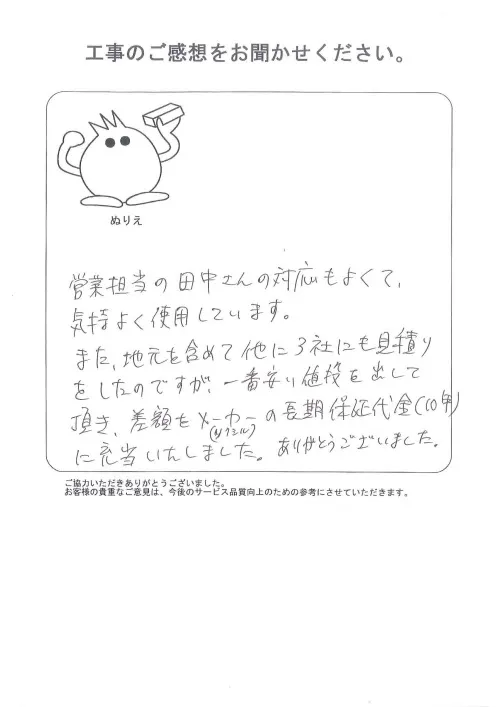 工事のご感想をお聞かせください。
ぬりえ
営業担当の田中さんの対応もよくて、
気持よく使用しています。
また、地元を含めて他に3社にも見積り
をしたのですが、一番安い値段を出して
頂き、差額をメーカーの長期保証代金(10年)
(リクシル)
に充当いたしました。ありがとうございました。
ご協力いただきありがとうございました。
お客様の貴重なご意見は、今後のサービス品質向上のための参考にさせていただきます。